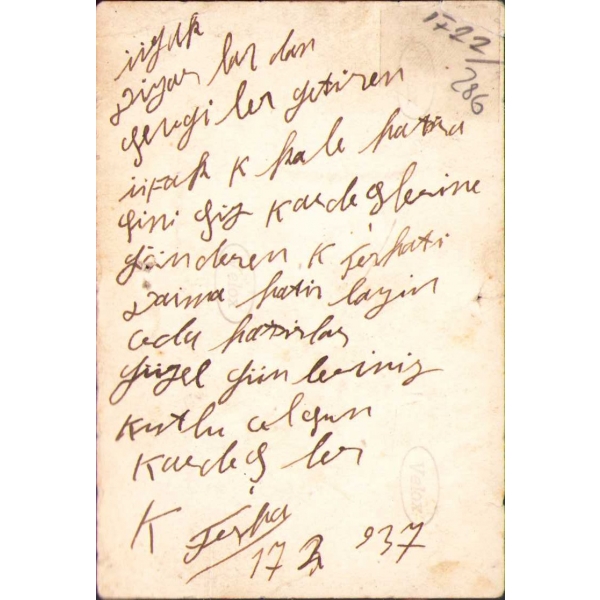 1722/
286
uzak
Diyar lar dan
Sevgi ler getiren
ufak K kale hatıra
sini siz Kardeşlerine
gönderen K Ferhatı
Daima hatır layın
oda hatırlar
güzel gün leriniz
Kutlu olsun
Kardeş ler
K Ferha
17 2 937
Velox
Velox